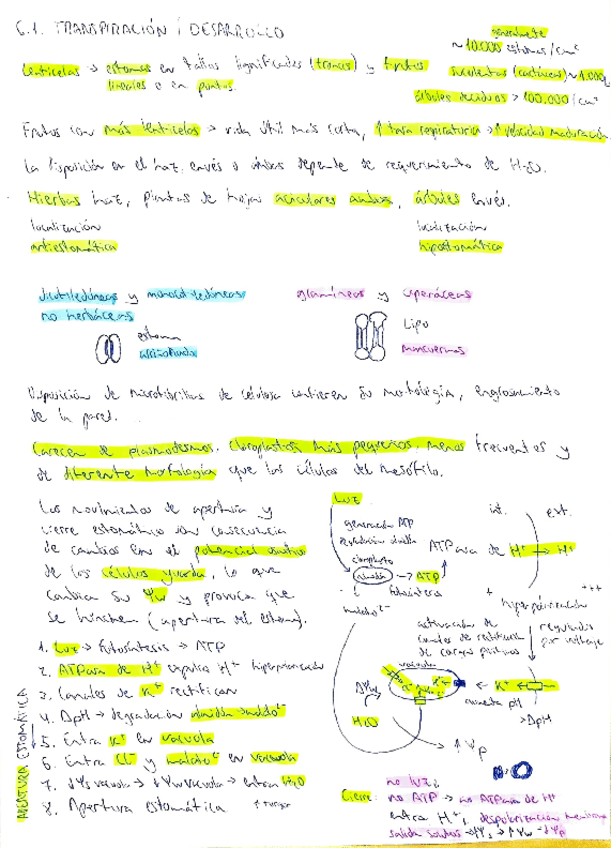 6.1. TRANSPIRACIÓN Y DESARROLLO
generalmente
~ 10.000 estomas/cm²
lenticelas → estomas en tallos lignificados (troncos) y frutos
lineales o en puntos.
suculentas (cactáceas) ~ 1.000
árboles deciduos > 100.000/cm²
Frutos con más lenticelas → vida útil más corta, ↑ tasa respiratoria → ↑ velocidad maduración
La disposición en el haz, envés o ambos depende de requerimiento de H₂O.
Hierbas haz, plantas de hojas aciculares ambos, árboles envés.
localización
antiestomática
localización
hipostomática
dicotiledóneas y monocotiledóneas
no herbáceas
estoma
arriñonado
gramíneas y ciperáceas
tipo
mancuernas
Disposición de microfibrillas de celulosa confieren su morfología, engrosamiento
de la pared.
Carecen de plasmodesmos. Cloroplastos más pequeños, menos frecuentes y
de diferente morfología que las células del mesófilo.
Los movimientos de apertura y
cierre estomático son consecuencia
de cambios en el potencial
de las células guarda, lo que
cambia su Ψw y provoca que
se hinchen (apertura del estoma).
1. Luz → fotosíntesis → ATP
2. ATPasa de H⁺ expulsa H⁺ hiperpolarizando
3. Canales de K⁺ rectifican
4. ΔpH → degradación almidón → malato²⁻
5. Entra K⁺ en vacuola
6. Entra Cl⁻ y malato²⁻ en vacuola
7. ↓Ψs vacuola → ↓Ψw vacuola → entra H₂O
8. Apertura estomática ↑ turgor
APERTURA ESTOMÁTICA
LUZ
generación ATP
degradación almidón
cloroplasto
almidón → ATP
fotosíntesis
malato²⁻
int. ext.
ATPasa de H⁺ → H⁺
hiperpolarización
+++
activación de
canales de rectificación
de cargas positivas
regulados
por voltaje
vacuola
K⁺ ← K⁺
aumenta pH
> ΔpH
ΔΨw
H₂O
↑ Ψp
Cierre: no luz:
no ATP → no ATPasa de H⁺
entra H⁺, despolarización membrana
salida solutos → ↑Ψs → ↑Ψw → ↓Ψp